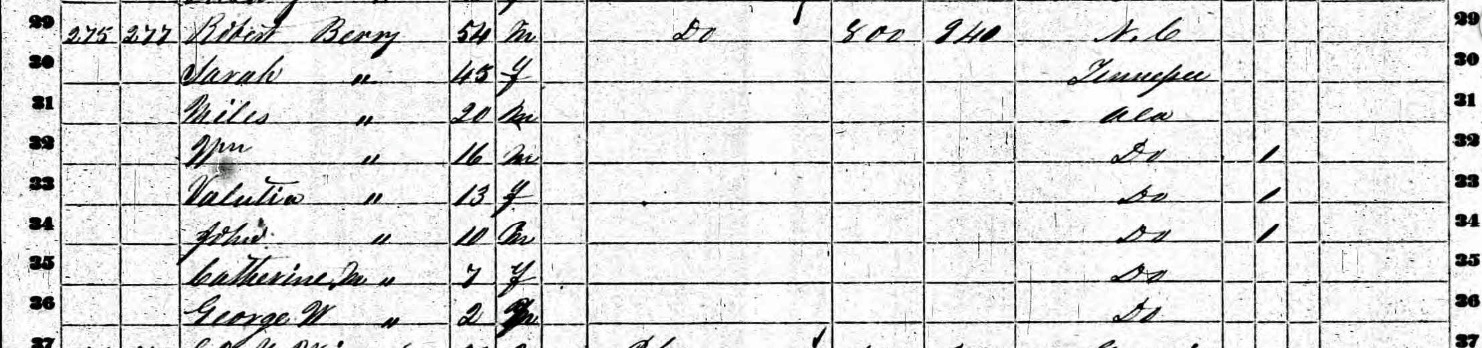 29 275 277 Robert Berry 54 m Do 800 240 N.C 29
30 Sarah " 45 f Tennessee 30
31 Miles " 20 m Ala 31
32 " 16 m Do 1 32
33 Valutia " 13 f Do 1 33
34 John " 10 m Do 1 34
35 Catherine M " 7 f Do 35
36 George W " 2 m Do 36
37 37